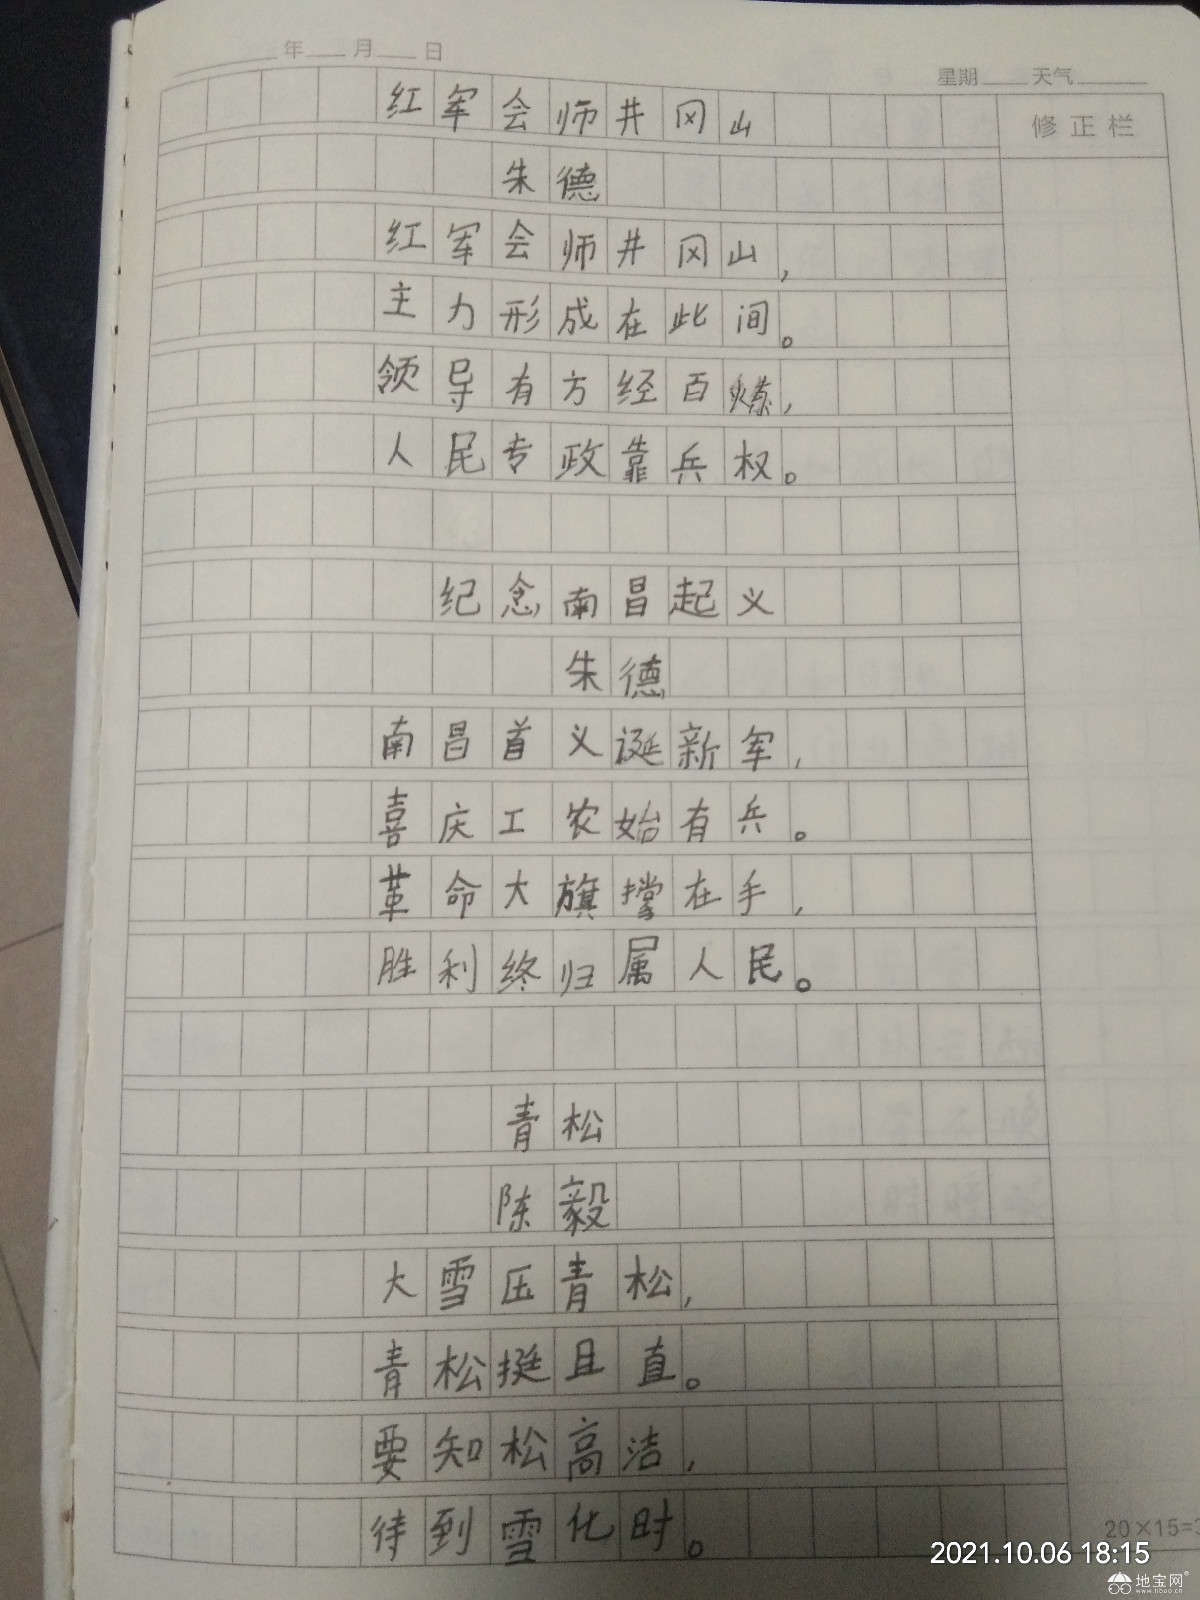 年 月 日
星期 天气
修正栏
红军会师井冈山
朱德
红军会师井冈山，
主力形成在此间。
领导有方经百爍，
人民专政靠兵权。
纪念南昌起义
朱德
南昌首义诞新军，
喜庆工农始有兵。
革命大旗撑在手，
胜利终归属人民。
青松
陈毅
大雪压青松，
青松挺且直。
要知松高洁，
待到雪化时。
20×15=3
2021.10.06 18:15
地宝网